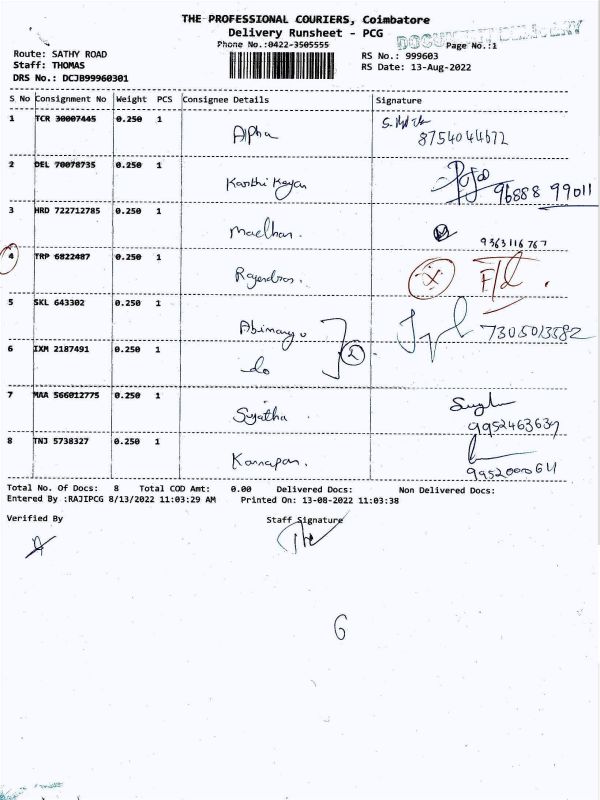 THE PROFESSIONAL COURIERS, Coimbatore
Delivery Runsheet - PCG
DOCUMENT DELIVERY
Phone No.:0422-3505555
Page No.:1
Route: SATHY ROAD
RS No.: 999603
Staff: THOMAS
RS Date: 13-Aug-2022
DRS No.: DCJB99960301
S No Consignment No Weight PCS Consignee Details Signature
1 TCR 30007445 0.250 1 Alpha
8754044672
2 DEL 70078735 0.250 1 Karthi Keyan
96888 99011
3 HRD 722712785 0.250 1 Madhan.
9363116767
4 TRP 6822487 0.250 1 Rajendran. X
5 SKL 643302 0.250 1 Abimanyu 7305013582
2
6 IXM 2187491 0.250 1 do
7 MAA 566012775 0.250 1 Sujatha
9952463637
8 TNJ 5738327 0.250 1 Kannapan.
9952000611
Total No. Of Docs: 8 Total COD Amt: 0.00 Delivered Docs: Non Delivered Docs:
Entered By :RAJIPCG 8/13/2022 11:03:29 AM Printed On: 13-08-2022 11:03:38
Verified By Staff Signature
6